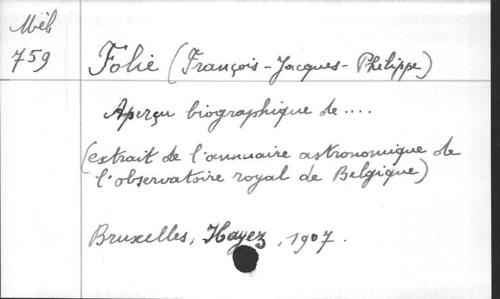 Mél
759
Folie (François-Jacques-Philippe)
Aperçu biographique de ....
(extrait de l'annuaire astronomique de
l'observatoire royal de Belgique)
Bruxelles, Hayez, 1907.